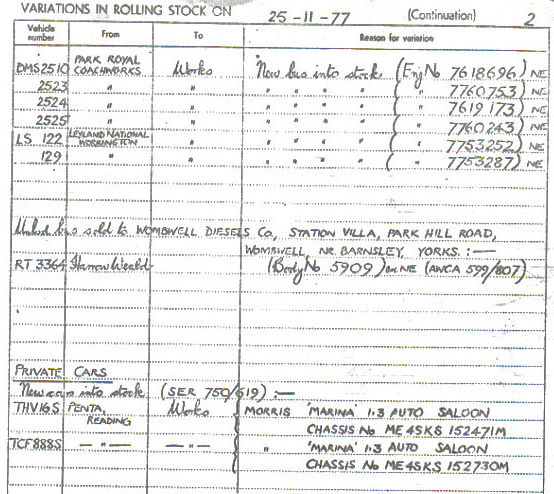 VARIATIONS IN ROLLING STOCK ON 25-11-77 (Continuation) 2
Vehicle number From To Reason for variation
DMS2510 PARK ROYAL COACHWORKS Works New bus into stock (Eng No 7618696) NE
2523 " " " " " " ( " 7760753) NE
2524 " " " " " " ( " 7619173) NE
2525 " " " " " " ( " 7760243) NE
LS 122 LEYLAND NATIONAL WORKINGTON " " " " " ( " 7753252) NE
129 " " " " " " ( " 7753287) NE
bus sold to WOMBWELL DIESELS Co, STATION VILLA, PARK HILL ROAD,
WOMBWELL, NR. BARNSLEY, YORKS. :—
RT 3364 Harrow Weald (Body No 5909) on NE (AWCA 599/807)
PRIVATE CARS
New cars into stock (SER 750/619) :—
THV16S PENTA, READING Works MORRIS 'MARINA' 1·3 AUTO SALOON
CHASSIS No ME4SKS 152471M
TCF888S — " — — " — " 'MARINA' 1·3 AUTO SALOON
CHASSIS No ME4SKS 152730M